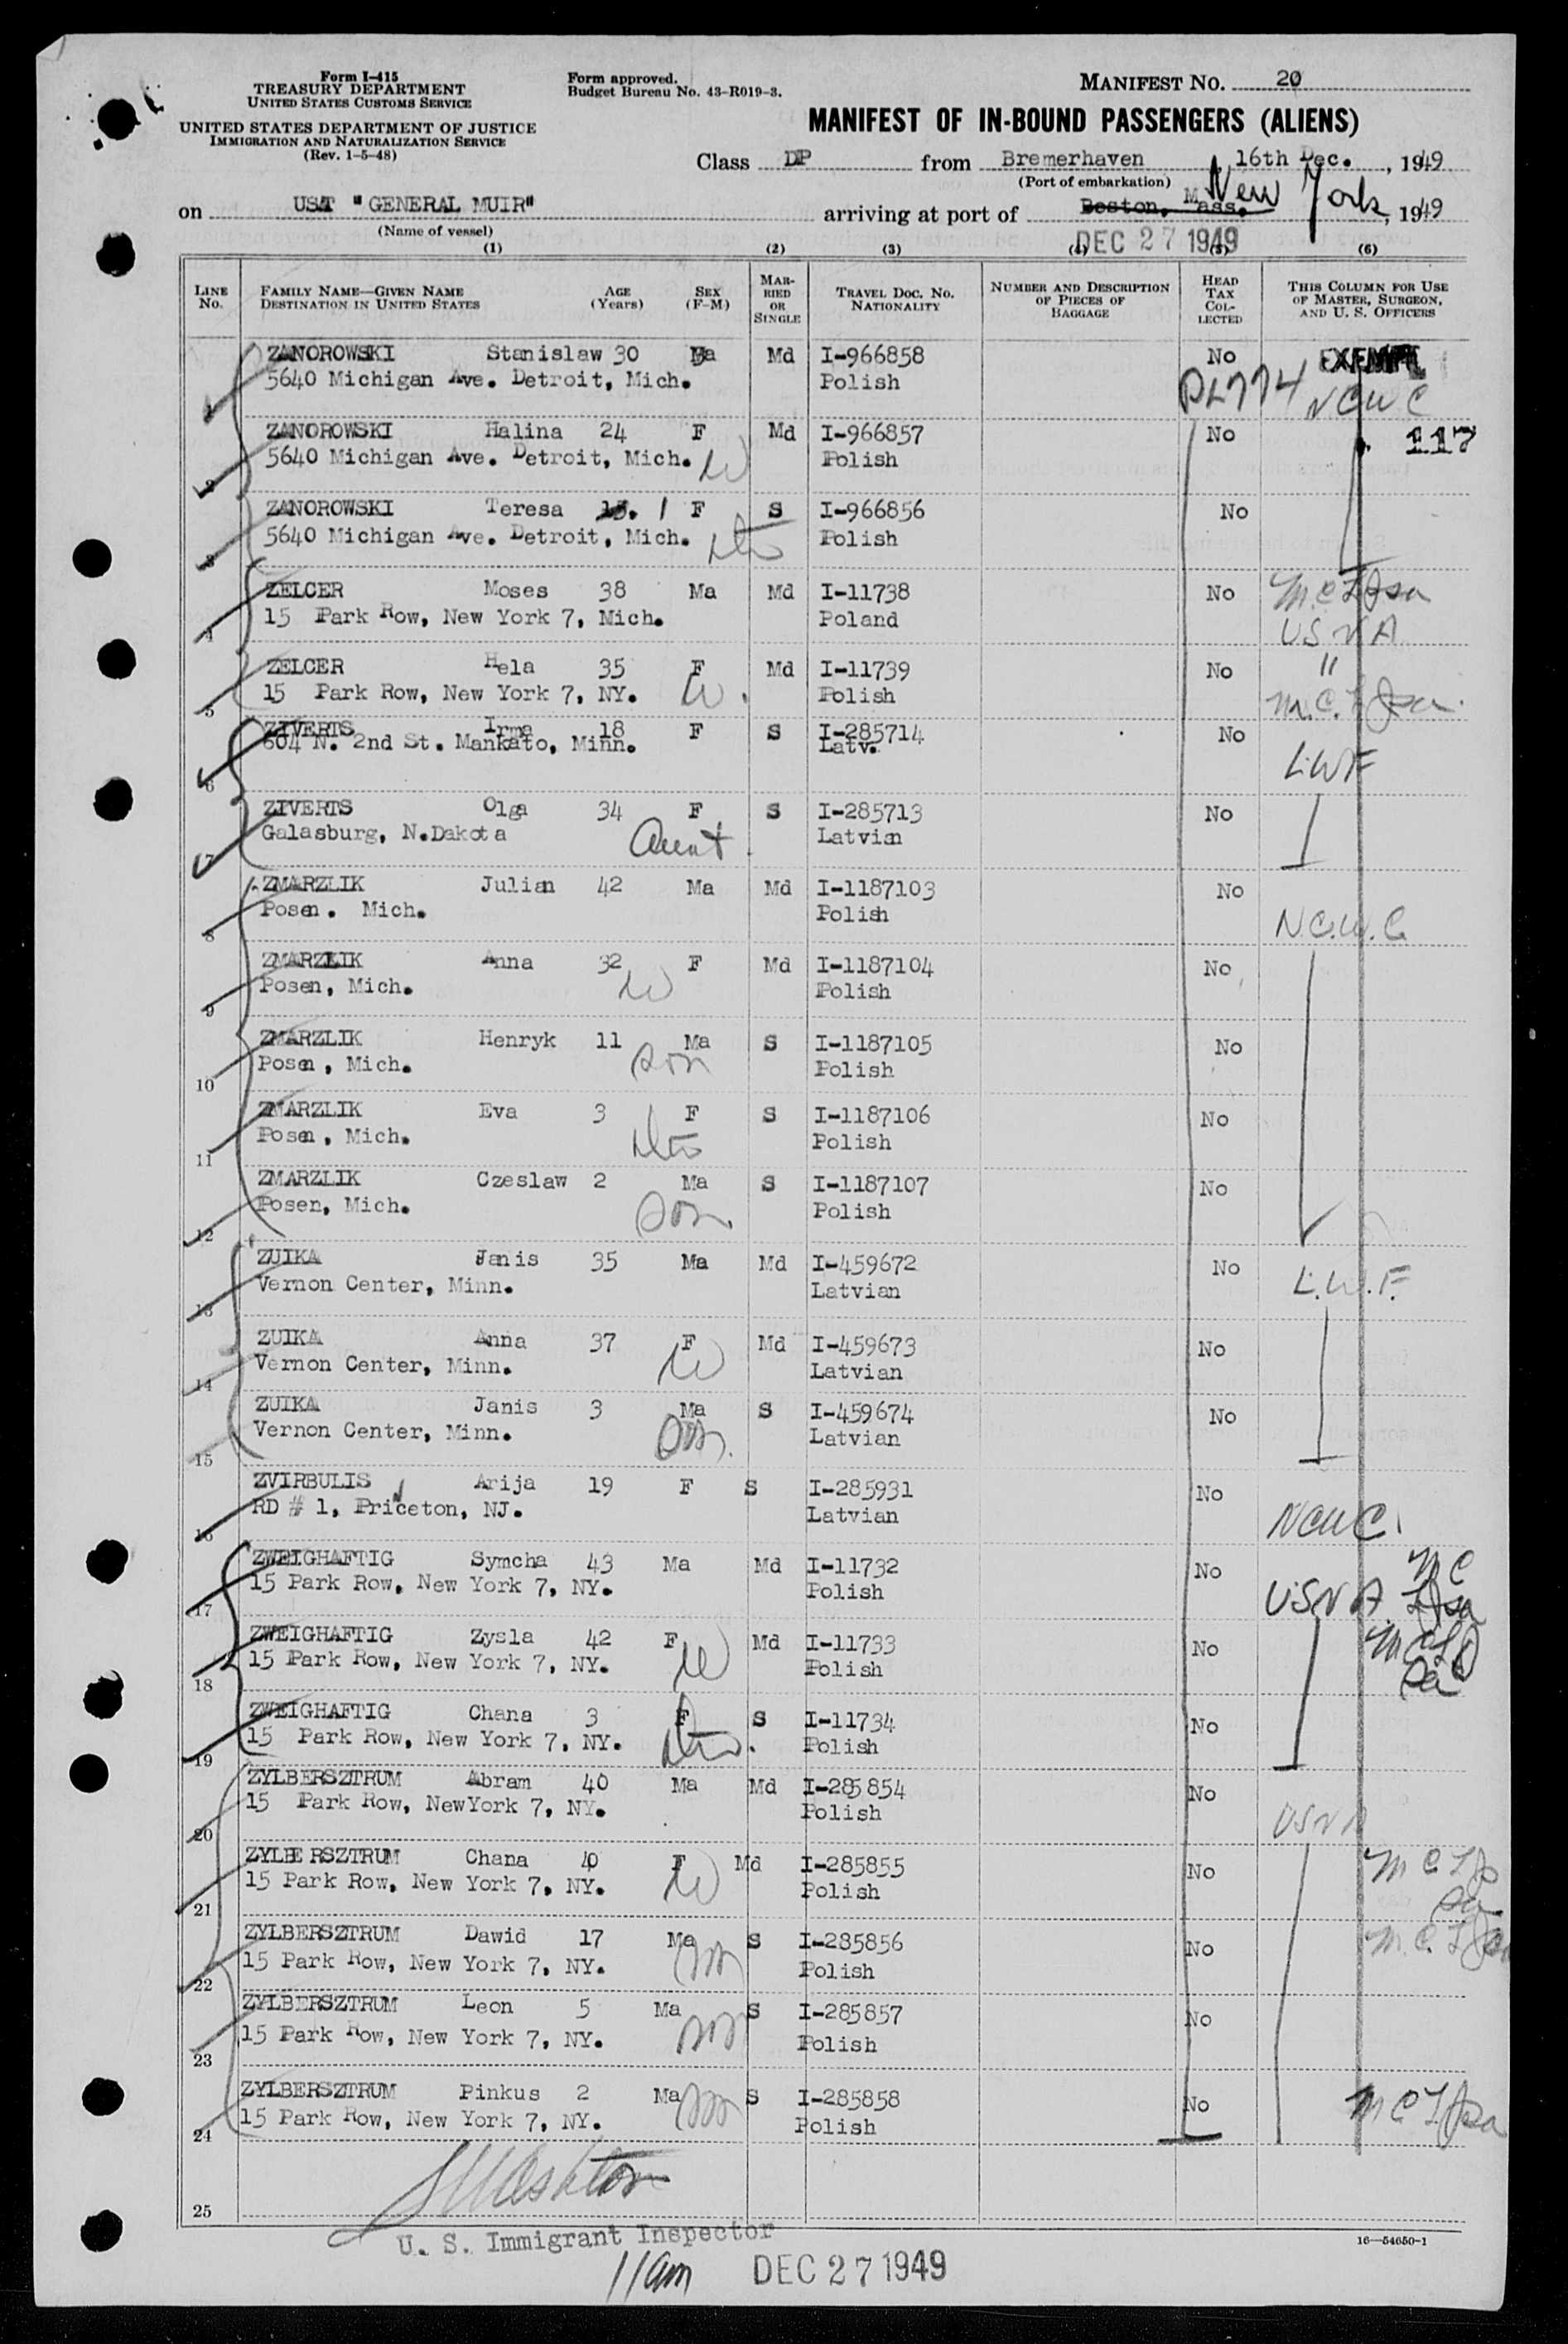 Form I-415
TREASURY DEPARTMENT
UNITED STATES CUSTOMS SERVICE
UNITED STATES DEPARTMENT OF JUSTICE
IMMIGRATION AND NATURALIZATION SERVICE
(Rev. 1-5-48)
Form approved.
Budget Bureau No. 43-R019-3.
MANIFEST NO. 20
MANIFEST OF IN-BOUND PASSENGERS (ALIENS)
Class DP from Bremerhaven, 16th Dec., 1949
(Port of embarkation)
on USAT "GENERAL MUIR" arriving at port of Boston, Mass. New York, 1949
(Name of vessel)
DEC 27 1949
(1) (2) (3) (4) (5) (6)
LINE No. FAMILY NAME—GIVEN NAME DESTINATION IN UNITED STATES AGE (Years) SEX (F-M) MARRIED OR SINGLE TRAVEL DOC. NO. NATIONALITY NUMBER AND DESCRIPTION OF PIECES OF BAGGAGE HEAD TAX COLLECTED THIS COLUMN FOR USE OF MASTER, SURGEON, AND U. S. OFFICERS
ZANOROWSKI Stanislaw 30 Ma Md I-966858 No EXEMPT
5640 Michigan Ave. Detroit, Mich. Polish PL774 NCWC
1
ZANOROWSKI Halina 24 F Md I-966857 No 117
5640 Michigan Ave. Detroit, Mich. W Polish
2
ZANOROWSKI Teresa 1 F S I-966856 No
5640 Michigan Ave. Detroit, Mich. dtr Polish
3
ZELCER Moses 38 Ma Md I-11738 No
15 Park Row, New York 7, Mich. Poland USNA
4
ZELCER Hela 35 F Md I-11739 No "
15 Park Row, New York 7, NY. W. Polish
5
ZIVERTS Irma 18 F S I-285714 No
604 N. 2nd St. Mankato, Minn. Latv. LWF
6
ZIVERTS Olga 34 F S I-285713 No
Galasburg, N.Dakota Aunt Latvian
7
ZMARZLIK Julian 42 Ma Md I-1187103 No
Posen. Mich. Polish N.C.W.C.
8
ZMARZLIK Anna 32 F Md I-1187104 No
Posen, Mich. W Polish
9
ZMARZLIK Henryk 11 Ma S I-1187105 No
Posen, Mich. Son Polish
10
ZMARZLIK Eva 3 F S I-1187106 No
Posen, Mich. dtr Polish
11
ZMARZLIK Czeslaw 2 Ma S I-1187107 No
Posen, Mich. Son Polish
12
ZUIKA Janis 35 Ma Md I-459672 No
Vernon Center, Minn. Latvian L.W.F.
13
ZUIKA Anna 37 F Md I-459673 No
Vernon Center, Minn. W Latvian
14
ZUIKA Janis 3 Ma S I-459674 No
Vernon Center, Minn. Son. Latvian
15
ZVIRBULIS Arija 19 F S I-285931 No
RD # 1, Priceton, NJ. Latvian NCWC.
16
ZWEIGHAFTIG Symcha 43 Ma Md I-11732 No
15 Park Row, New York 7, NY. Polish USNA
17
ZWEIGHAFTIG Zysla 42 F Md I-11733 No
15 Park Row, New York 7, NY. W Polish
18
ZWEIGHAFTIG Chana 3 F S I-11734 No
15 Park Row, New York 7, NY. dtr. Polish
19
ZYLBERSZTRUM Abram 40 Ma Md I-285854 No
15 Park Row, NewYork 7, NY. Polish USNA
20
ZYLBERSZTRUM Chana 40 F Md I-285855 No
15 Park Row, New York 7, NY. W Polish
21
ZYLBERSZTRUM Dawid 17 Ma S I-285856 No
15 Park Row, New York 7, NY. son Polish
22
ZYLBERSZTRUM Leon 5 Ma S I-285857 No
15 Park Row, New York 7, NY. son Polish
23
ZYLBERSZTRUM Pinkus 2 Ma S I-285858 No
15 Park Row, New York 7, NY. son Polish
24
25
U. S. Immigrant Inspector
16—54650-1
11am DEC 27 1949